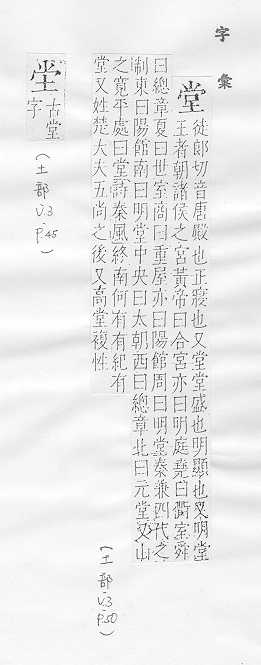 字彙
堂
徒郎切音唐殿也正寢也又堂堂盛也明顯也又明堂
王者朝諸侯之宮黃帝曰合宮亦曰明庭堯曰衢室舜
曰總章夏曰世室商曰重屋亦曰陽館周曰明堂秦兼四代之
制東曰陽館南曰明堂中央曰太朝西曰總章北曰元堂又山
之寬平處曰堂詩秦風終南何有有紀有
堂又姓楚大夫五尚之後又高堂複姓
(土部 V.3 P.50)
坣
古堂
字
(土部 V.3 P.45)